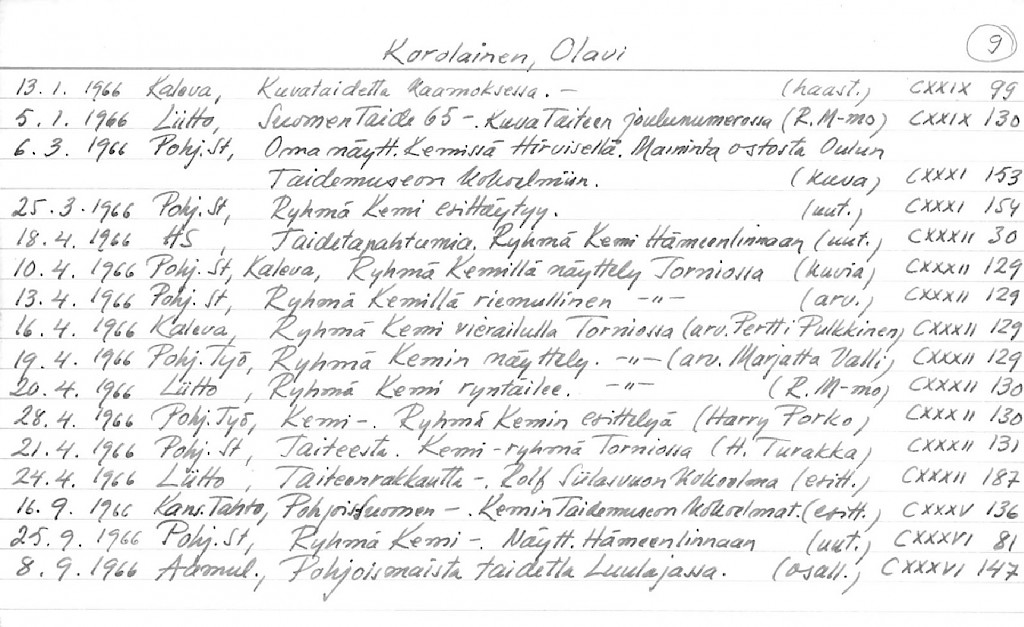 9
Korolainen, Olavi
13.1. 1966 Kaleva, Kuvataidetta Kaamoksessa. – (haast.) CXXIX 99
5.1. 1966 Liitto, Suomen Taide 65 –. Kuva Taiteen joulunumerossa (R.M-mo) CXXIX 130
6.3. 1966 Pohj.St, Oma näytt. Kemissä Hirvisellä. Maininta ostosta Oulun
Taidemuseon Kokoelmiin. (kuva) CXXXI 153
25.3.1966 Pohj.St, Ryhmä Kemi esittäytyy. (uut.) CXXXI 154
18.4. 1966 HS, Taidetapahtumia. Ryhmä Kemi Hämeenlinnaan (uut.) CXXXII 30
10.4. 1966 Pohj.St, Kaleva, Ryhmä Kemillä näyttely Torniossa (kuvia) CXXXII 129
13.4. 1966 Pohj.St, Ryhmä Kemillä riemullinen –"– (arv.) CXXXII 129
16.4. 1966 Kaleva, Ryhmä Kemi vierailulla Torniossa (arv. Pertti Pulkkinen) CXXXII 129
19.4. 1966 Pohj.Työ, Ryhmä Kemin näyttely. –"– (arv. Marjatta Valli) CXXXII 129
20.4. 1966 Liitto, Ryhmä Kemi ryntäilee. –"– (R.M-mo) CXXXII 130
28.4. 1966 Pohj.Työ, Kemi –. Ryhmä Kemin esittelyä (Harry Porko) CXXXII 130
21.4. 1966 Pohj.St, Taiteesta. Kemi-ryhmä Torniossa (H. Turakka) CXXXII 131
24.4. 1966 Liitto, Taiteenrakkautta –. Rolf Siilasvuon Kokoelma (esitt.) CXXXII 187
16.9. 1966 Kans.Tahto, Pohjois Suomen –. Kemin Taidemuseon Kokoelmat. (esitt.) CXXXV 136
25.9. 1966 Pohj.St, Ryhmä Kemi –. Näytt. Hämeenlinnaan (uut.) CXXXVI 81
8.9. 1966 Aamul., Pohjoismaista taidetta Luulajassa. (osall.) CXXXVI 147